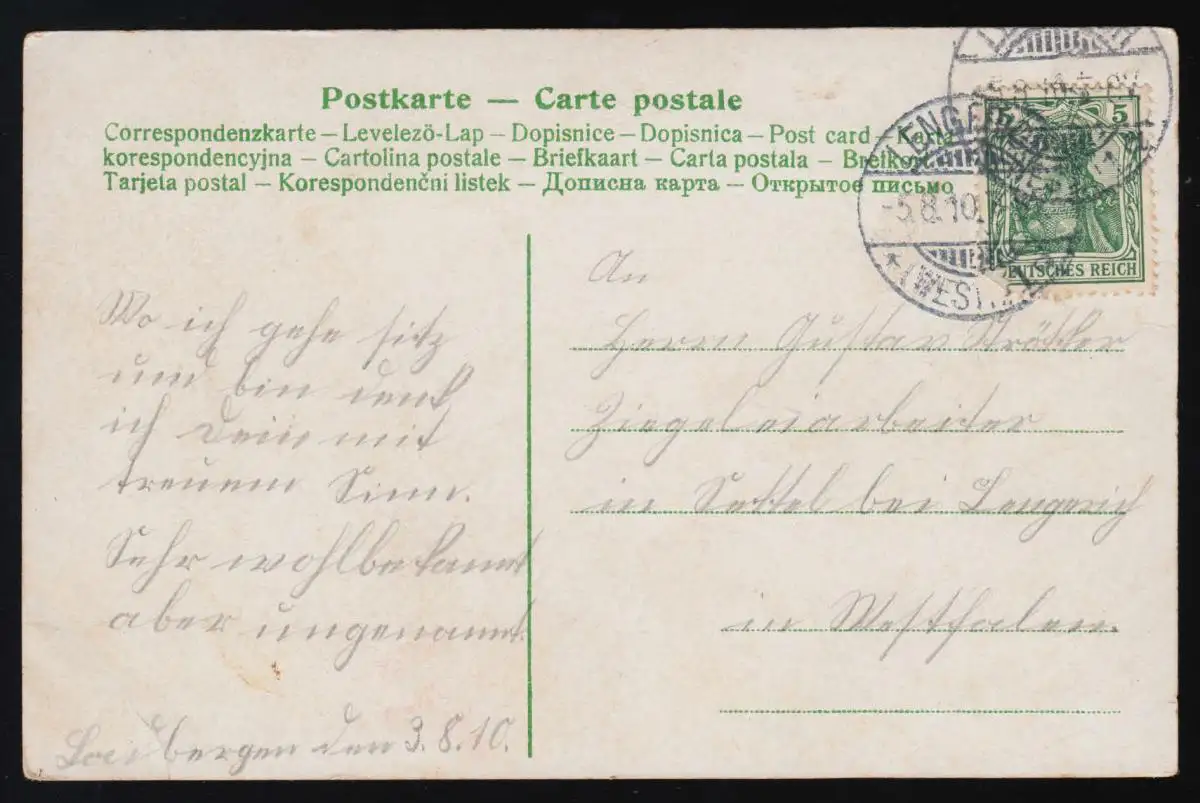 Postkarte — Carte postale
Correspondenzkarte – Levelező-Lap – Dopisnice – Dopisnica – Post card – Karta
korespondencyjna – Cartolina postale – Briefkaart – Carta postala – Brefkort
Tarjeta postal – Korespondenčni listek – Дописна карта – Открытое письмо
5
DEUTSCHES REICH
LENGERICH
-5.8.10.
* (WESTF.)
Wo ich gehe sitz
und bin denk
ich dein mit
treuem Sinn.
Sehr wohlbekannt
aber ungenannt.
bergen den 3.8.10.
An
Herrn Gustav Strätker
Ziegeleiarbeiter
in Settel bei Lengerich
in Westfalen.